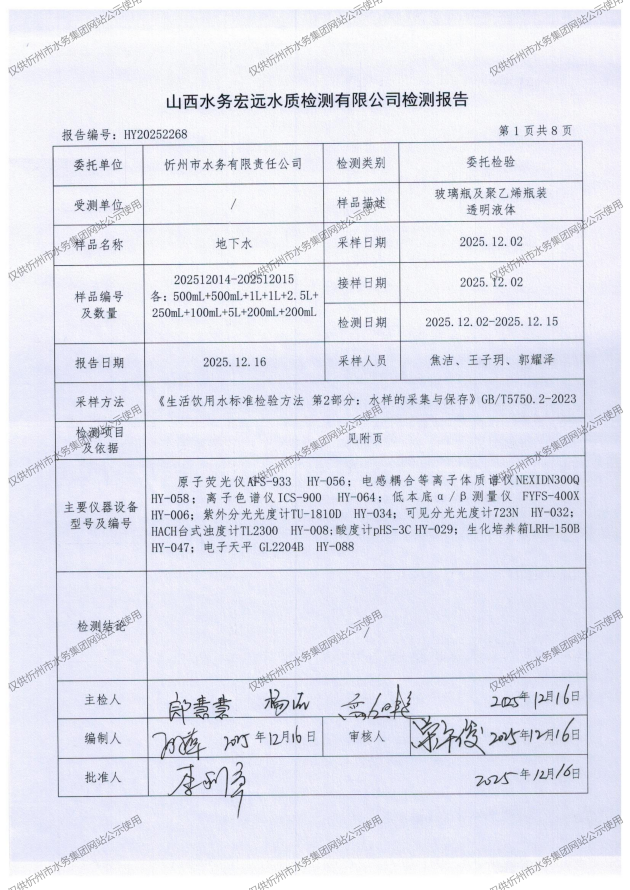 山西水务宏远水质检测有限公司检测报告
报告编号：HY20252268
第 1 页共 8 页
委托单位
忻州市水务有限责任公司
检测类别
委托检验
受测单位
/
样品描述
玻璃瓶及聚乙烯瓶装
透明液体
样品名称
地下水
采样日期
2025.12.02
样品编号
及数量
202512014-202512015
各：500mL+500mL+1L+1L+2.5L+
250mL+100mL+5L+200mL+200mL
接样日期
2025.12.02
检测日期
2025.12.02-2025.12.15
报告日期
2025.12.16
采样人员
焦洁、王子玥、郭耀泽
采样方法
《生活饮用水标准检验方法 第2部分：水样的采集与保存》GB/T5750.2-2023
检测项目
及依据
见附页
主要仪器设备
型号及编号
原子荧光仪AFS-933 HY-056；电感耦合等离子体质谱仪NEXIDN300Q
HY-058；离子色谱仪ICS-900 HY-064；低本底α/β测量仪 FYFS-400X
HY-006；紫外分光光度计TU-1810D HY-034；可见分光光度计723N HY-032；
HACH台式浊度计TL2300 HY-008；酸度计pHS-3C HY-029；生化培养箱LRH-150B
HY-047；电子天平 GL2204B HY-088
检测结论
/
主检人
2025年12月16日
编制人
2025年12月16日
审核人
2025年12月16日
批准人
2025年12月16日
仅供忻州市水务集团网站公示使用